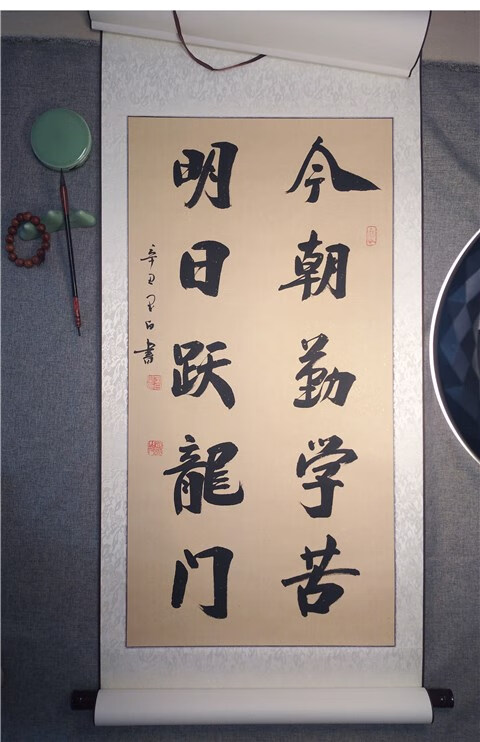 今朝勤学苦
明日跃龍门
辛丑
书